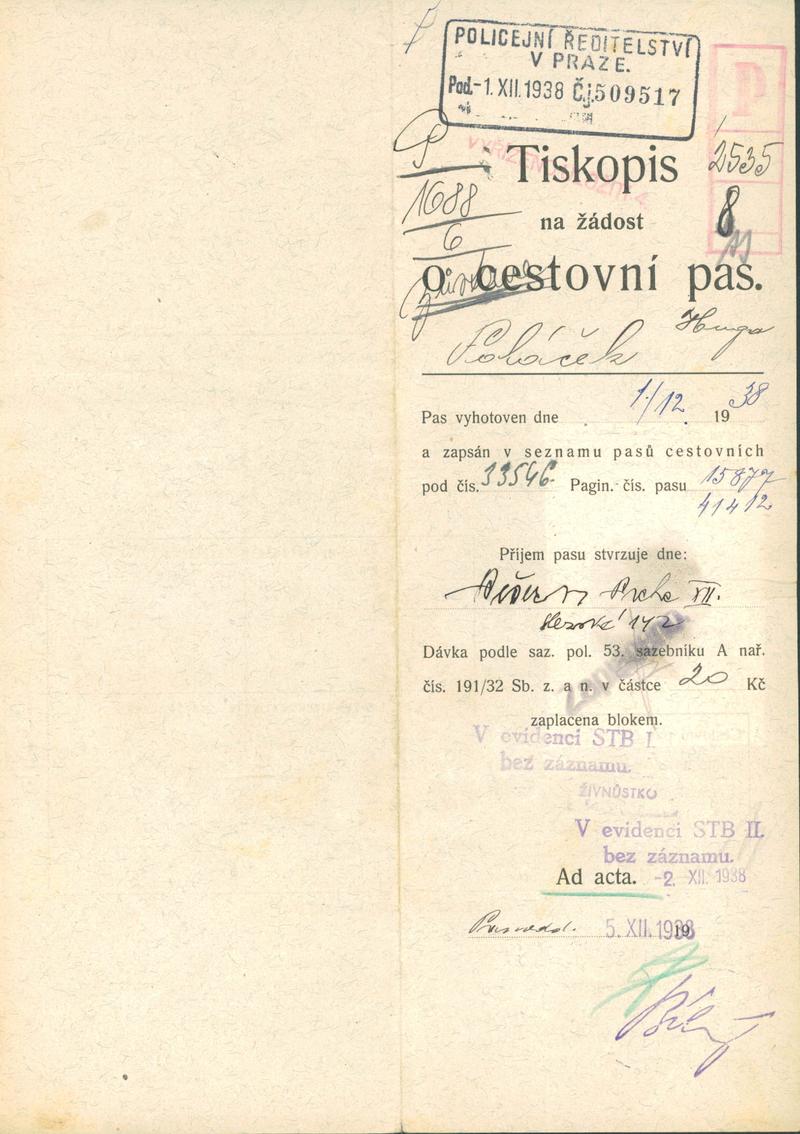 POLICEJNÍ ŘEDITELSTVÍ
V PRAZE.
Pod. -1. XII. 1938 Čj. 509517
P
2535
8
P
1688
6
Tiskopis
na žádost
o cestovní pas.
Poláček Hugo
Pas vyhotoven dne 1/12. 1938
a zapsán v seznamu pasů cestovních
pod čís. 33546 Pagin. čís. pasu 15877
41412
Příjem pasu stvrzuje dne:
Praha VII.
142
Dávka podle saz. pol. 53. sazebníku A nař.
čís. 191/32 Sb. z. a n. v částce 20 Kč
zaplacena blokem.
V evidenci STB I.
bez záznamu.
ŽIVNŮSTKO
V evidenci STB II.
bez záznamu.
Ad acta. -2. XII. 1938
5. XII. 1938
19